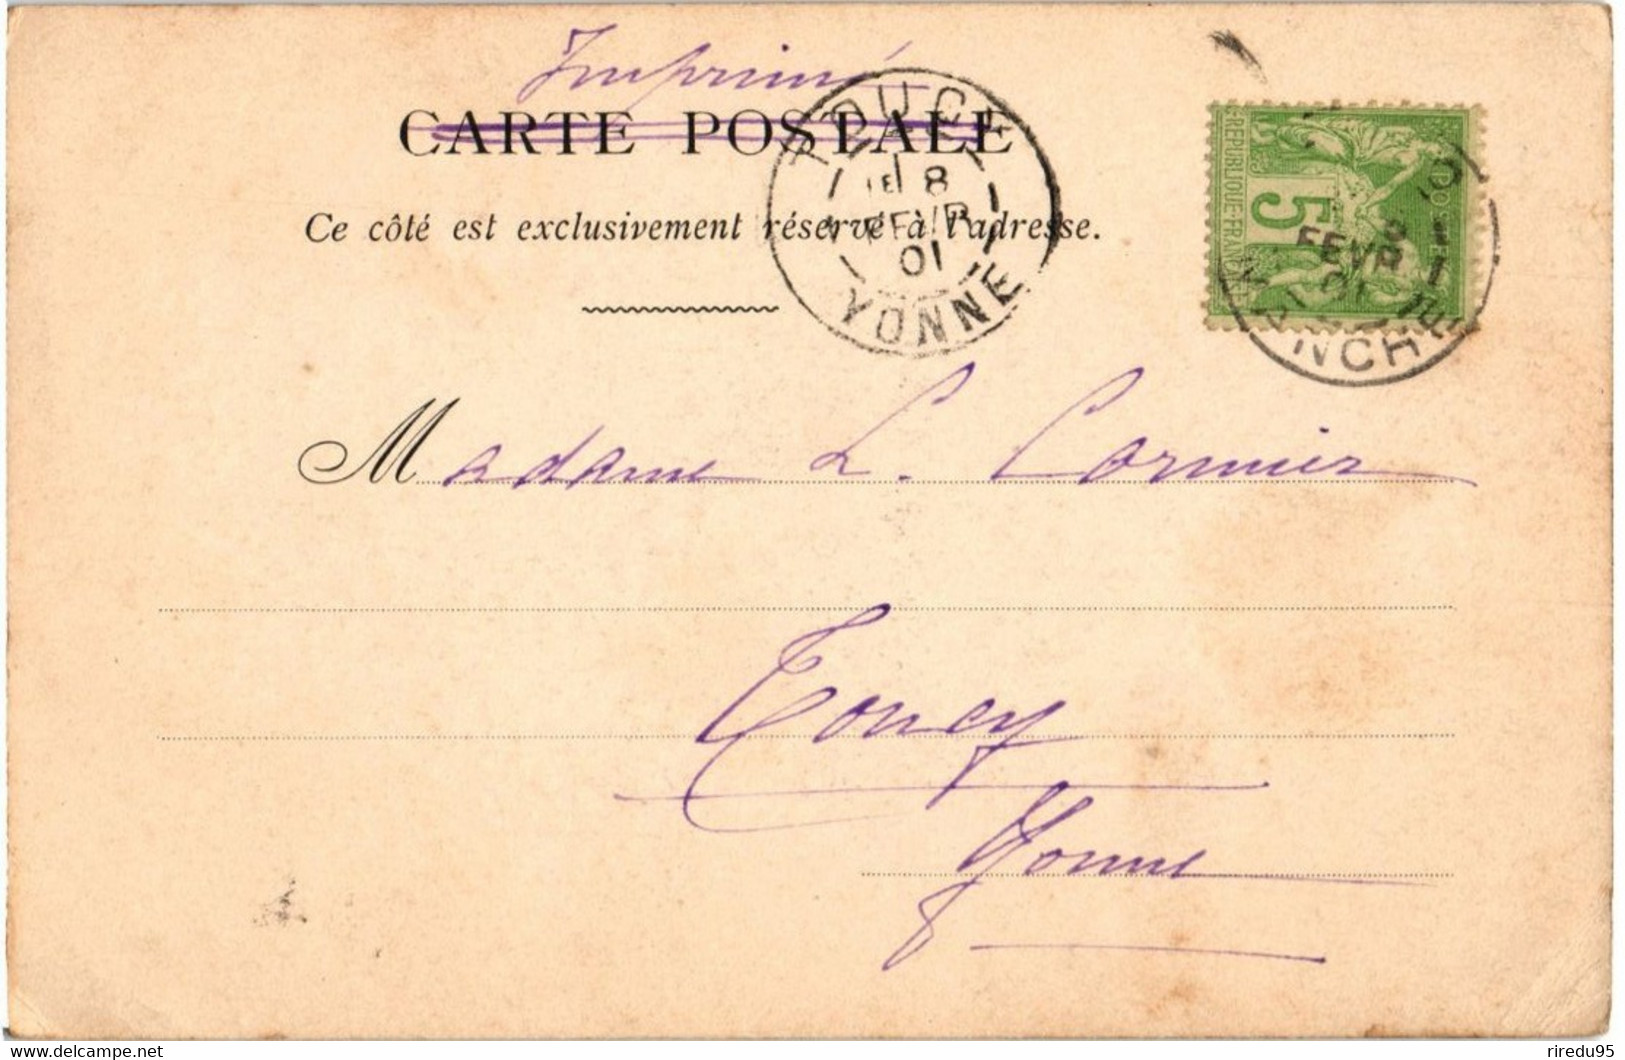 Imprimé
CARTE POSTALE
Ce côté est exclusivement réservé à l'adresse.
TOUCY
1E 8
FEVR
01
YONNE
POSTES
REPUBLIQUE-FRANC
5
FEVR
01
MANCHE
Madame L. Cormier
Toucy
Yonne
riredu95